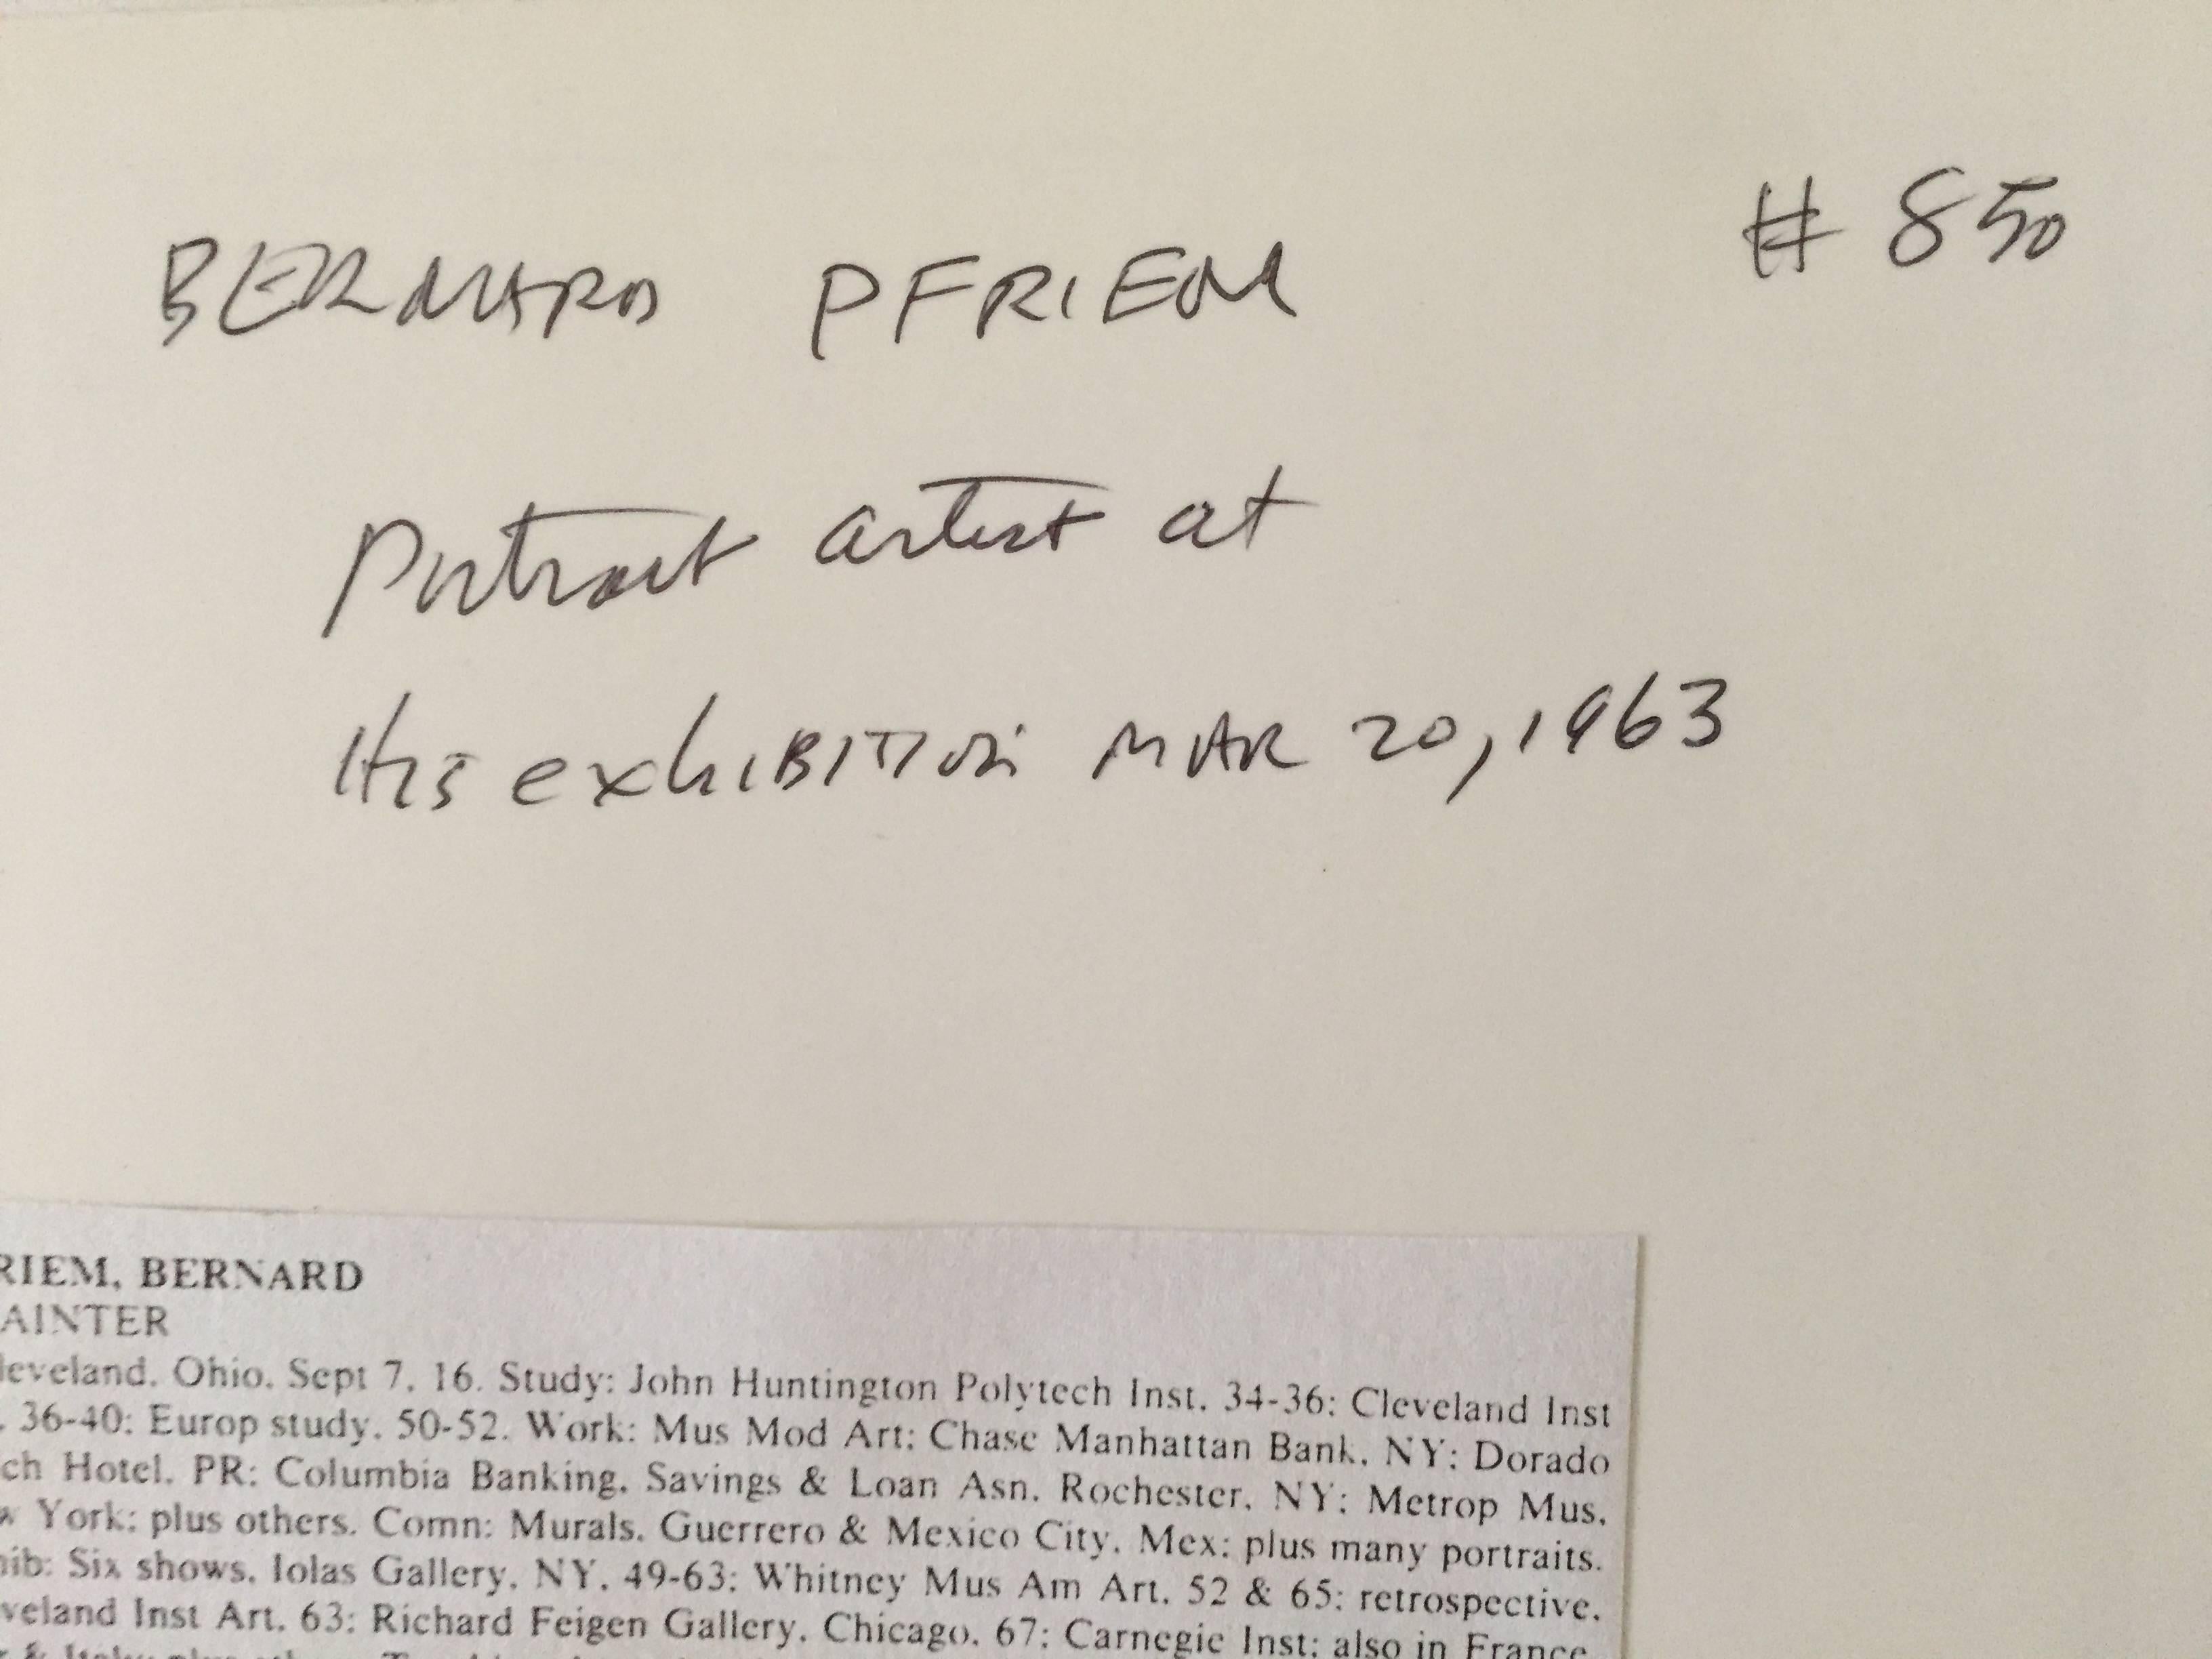 # 850
BERNARD PFRIEM
Portrait artist at
His exhiBITION MAR 20, 1963
RIEM, BERNARD
AINTER
leveland, Ohio, Sept 7, 16. Study: John Huntington Polytech Inst, 34-36; Cleveland Inst
. 36-40; Europ study, 50-52. Work: Mus Mod Art; Chase Manhattan Bank, NY; Dorado
ch Hotel, PR; Columbia Banking, Savings & Loan Asn, Rochester, NY; Metrop Mus,
w York; plus others. Comn: Murals, Guerrero & Mexico City, Mex; plus many portraits.
hib: Six shows, Iolas Gallery, NY, 49-63; Whitney Mus Am Art, 52 & 65; retrospective,
veland Inst Art, 63; Richard Feigen Gallery, Chicago, 67; Carnegie Inst; also in France